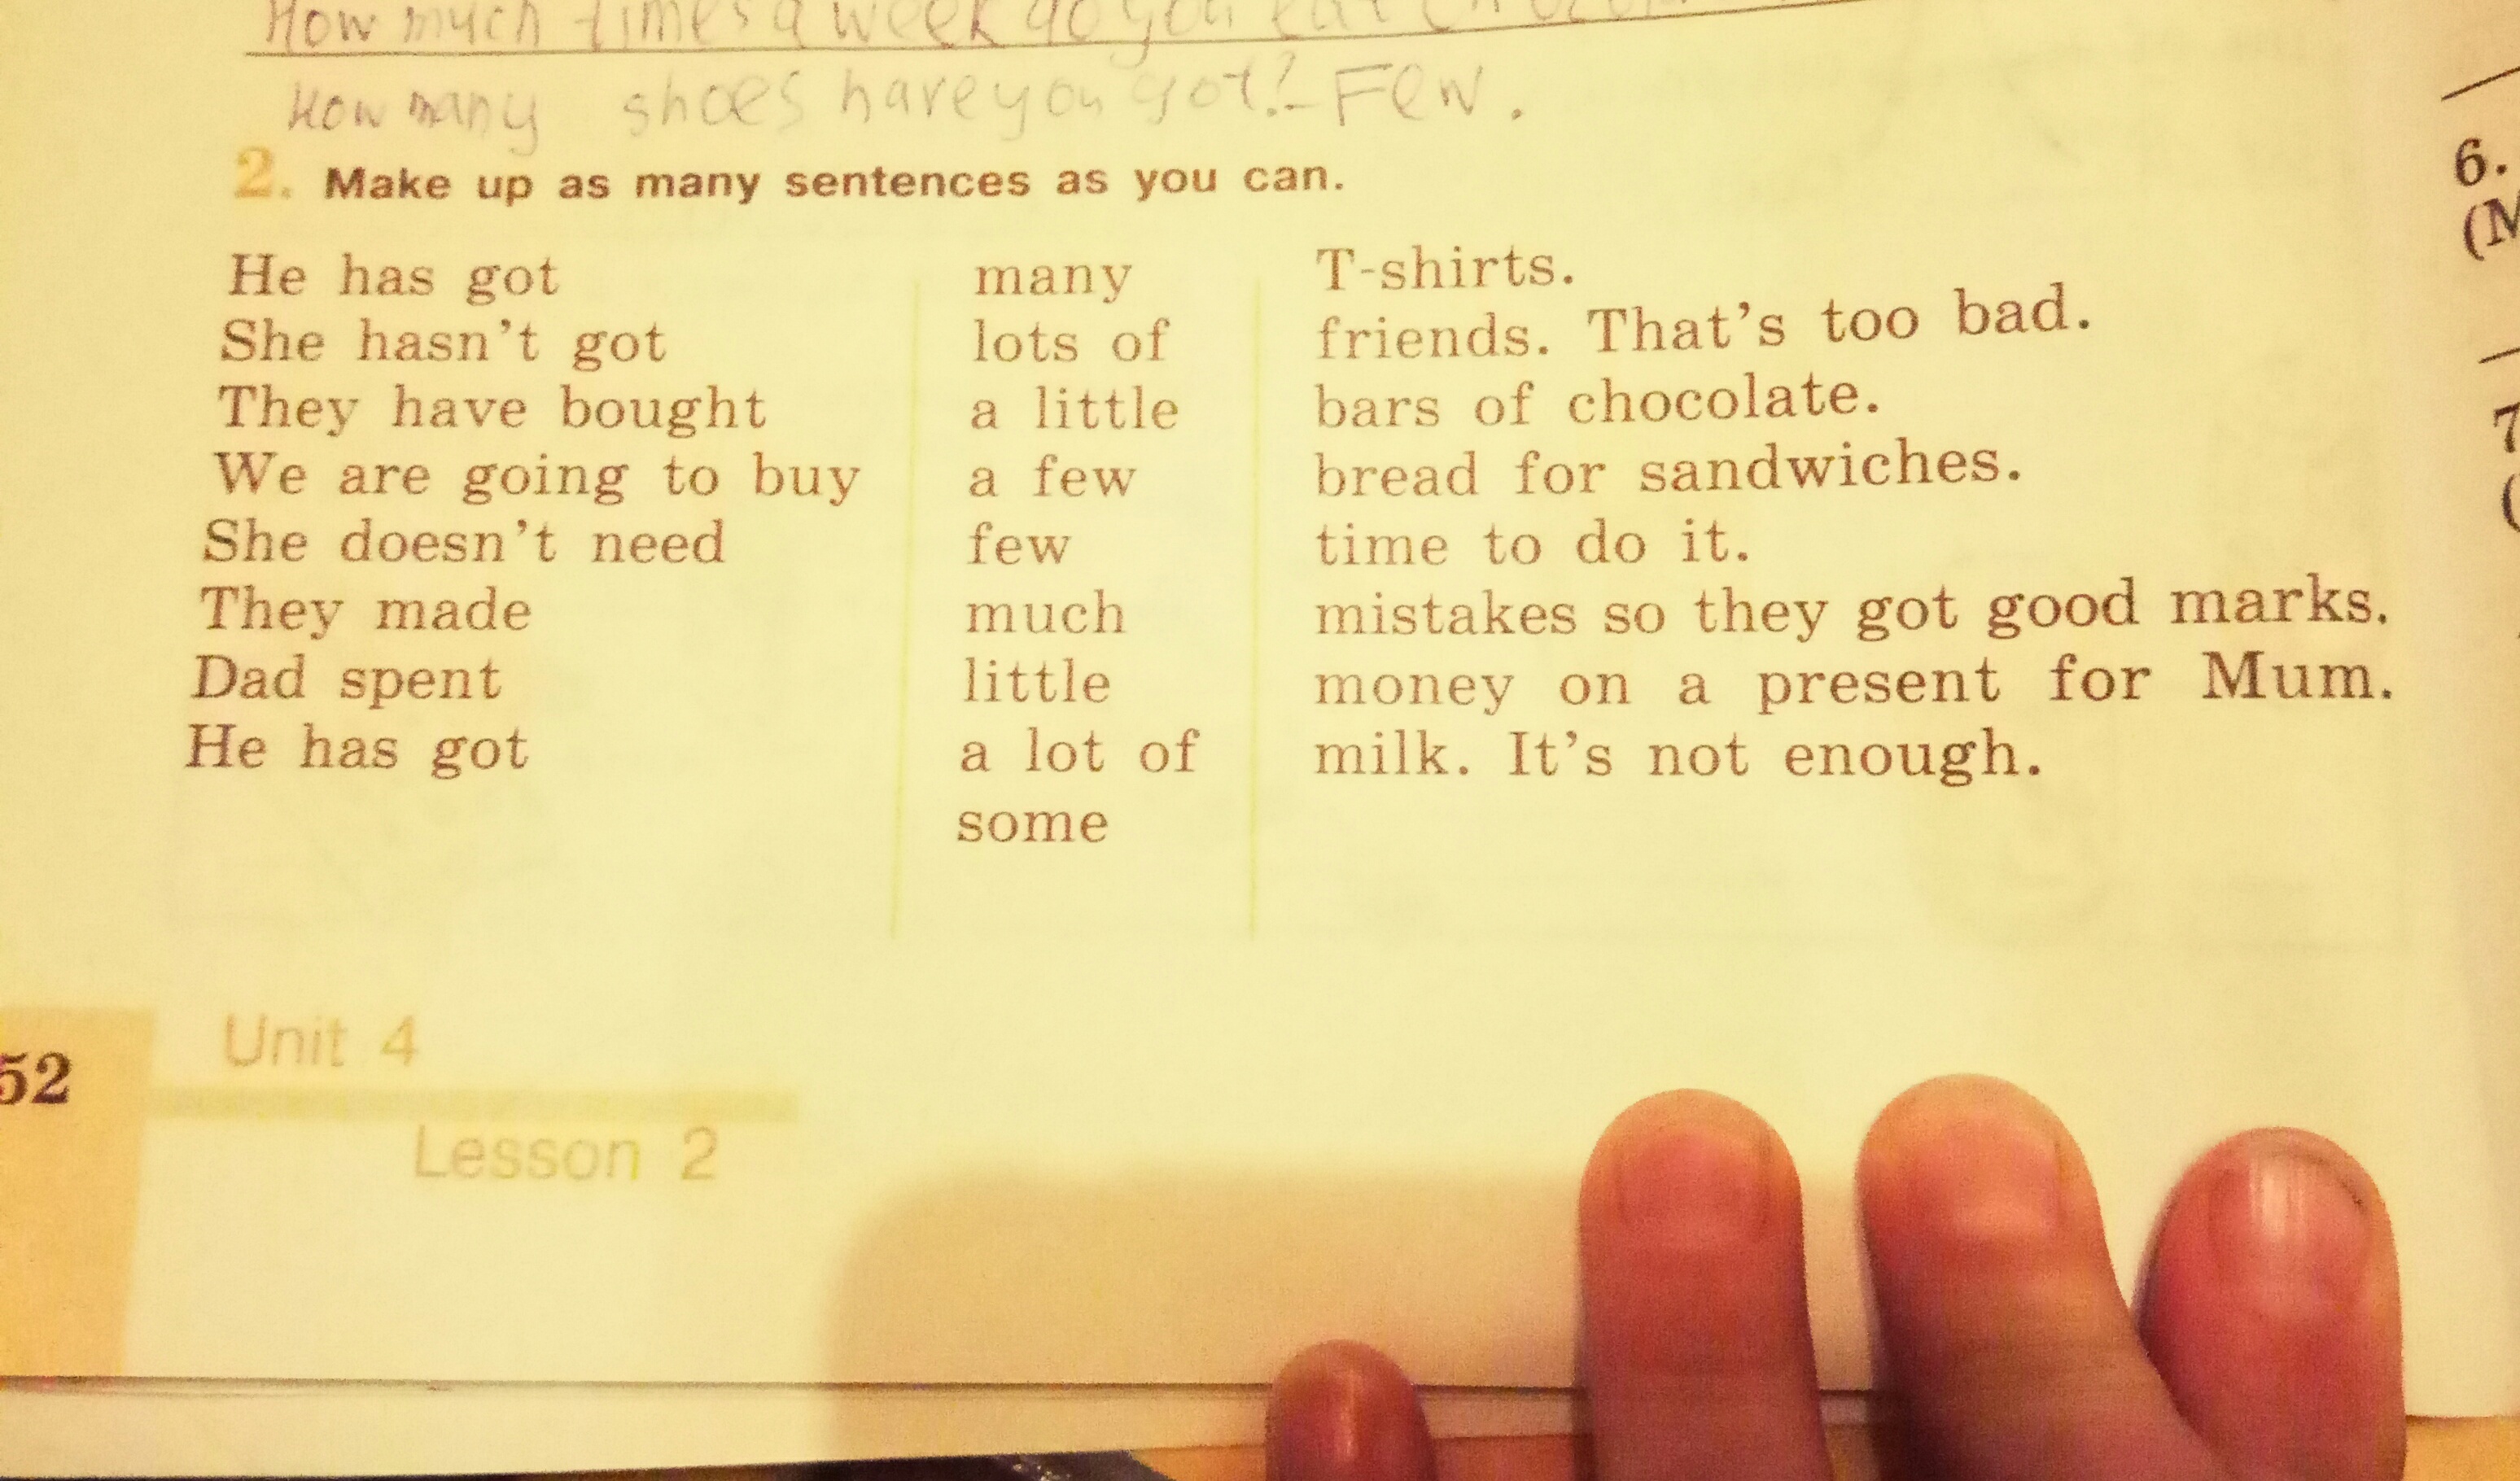 How much times a week do you eat
How many shoes have you got? - Few.
2. Make up as many sentences as you can.
He has got many T-shirts.
She hasn't got lots of friends. That's too bad.
They have bought a little bars of chocolate.
We are going to buy a few bread for sandwiches.
She doesn't need few time to do it.
They made much mistakes so they got good marks.
Dad spent little money on a present for Mum.
He has got a lot of milk. It's not enough.
some
52
Unit 4
Lesson 2
6.
(M
7
(